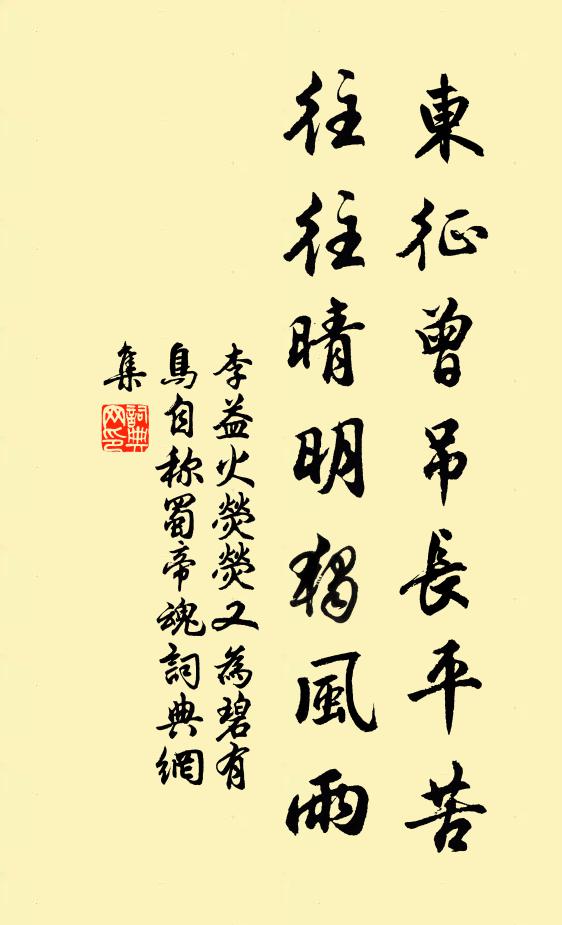 東征曾吊長平苦
往往晴明獨風雨
李益火熒熒又為碧有
鳥自称蜀帝魂詞典網
集
詞典網印